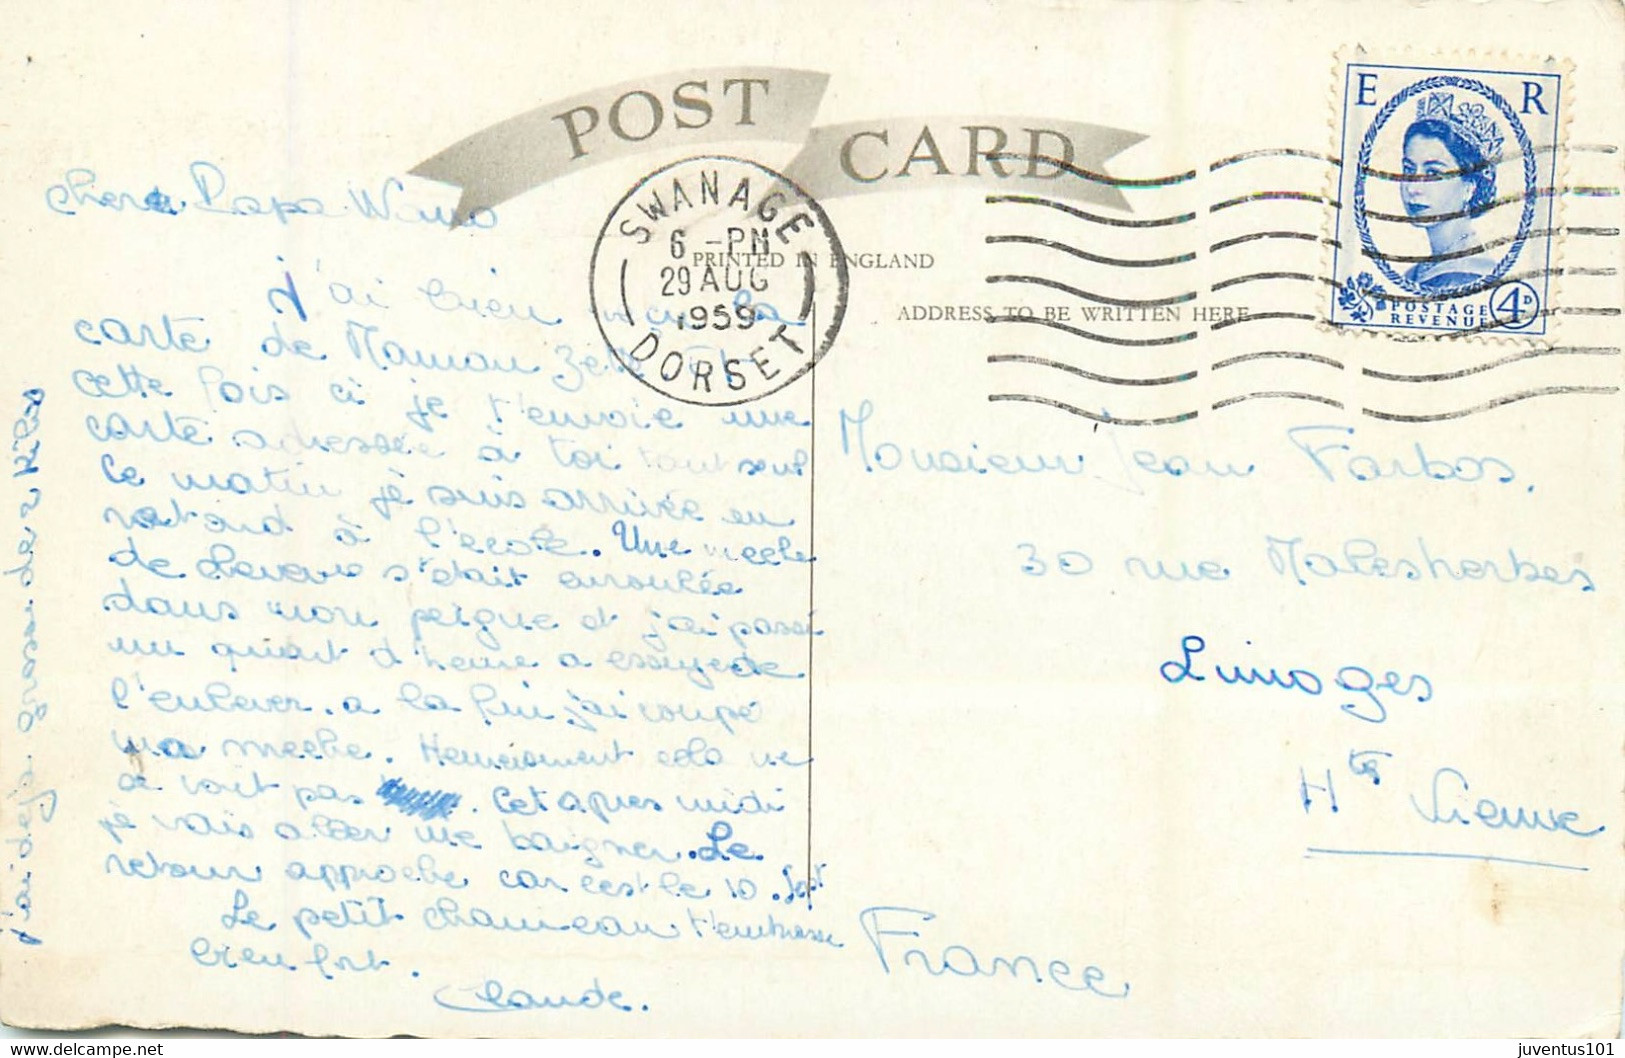 POST CARD
PRINTED IN ENGLAND
ADDRESS TO BE WRITTEN HERE
SWANAGE
6 - PM
29 AUG
1959
DORSET
E R
POSTAGE
REVENUE
4D
Papa
j'ai bien la
carte de Maman
cette fois ci je t'envoie une
carte adressée à toi tout seul
Ce matin je suis arrivée en
retard à l'école. Une meche
de cheveux s'était enroulée
dans mon peigne et j'ai passé
un quart d'heure a essayer de
l'enlever. a la fin j'ai coupé
ma meche. Heureusement cela ne
se voit pas. Cet apres midi
je vais aller me baigner. Le
retour approche car c'est le 10 Sept
Le petit chameau t'embrasse
bien fort.
Claude.
j'ai deja grossi de 2 kilos
Monsieur Jean Farbos.
30 rue Malesherbes
Limoges
Hte Vienne
France
delcampe.net
juventus101